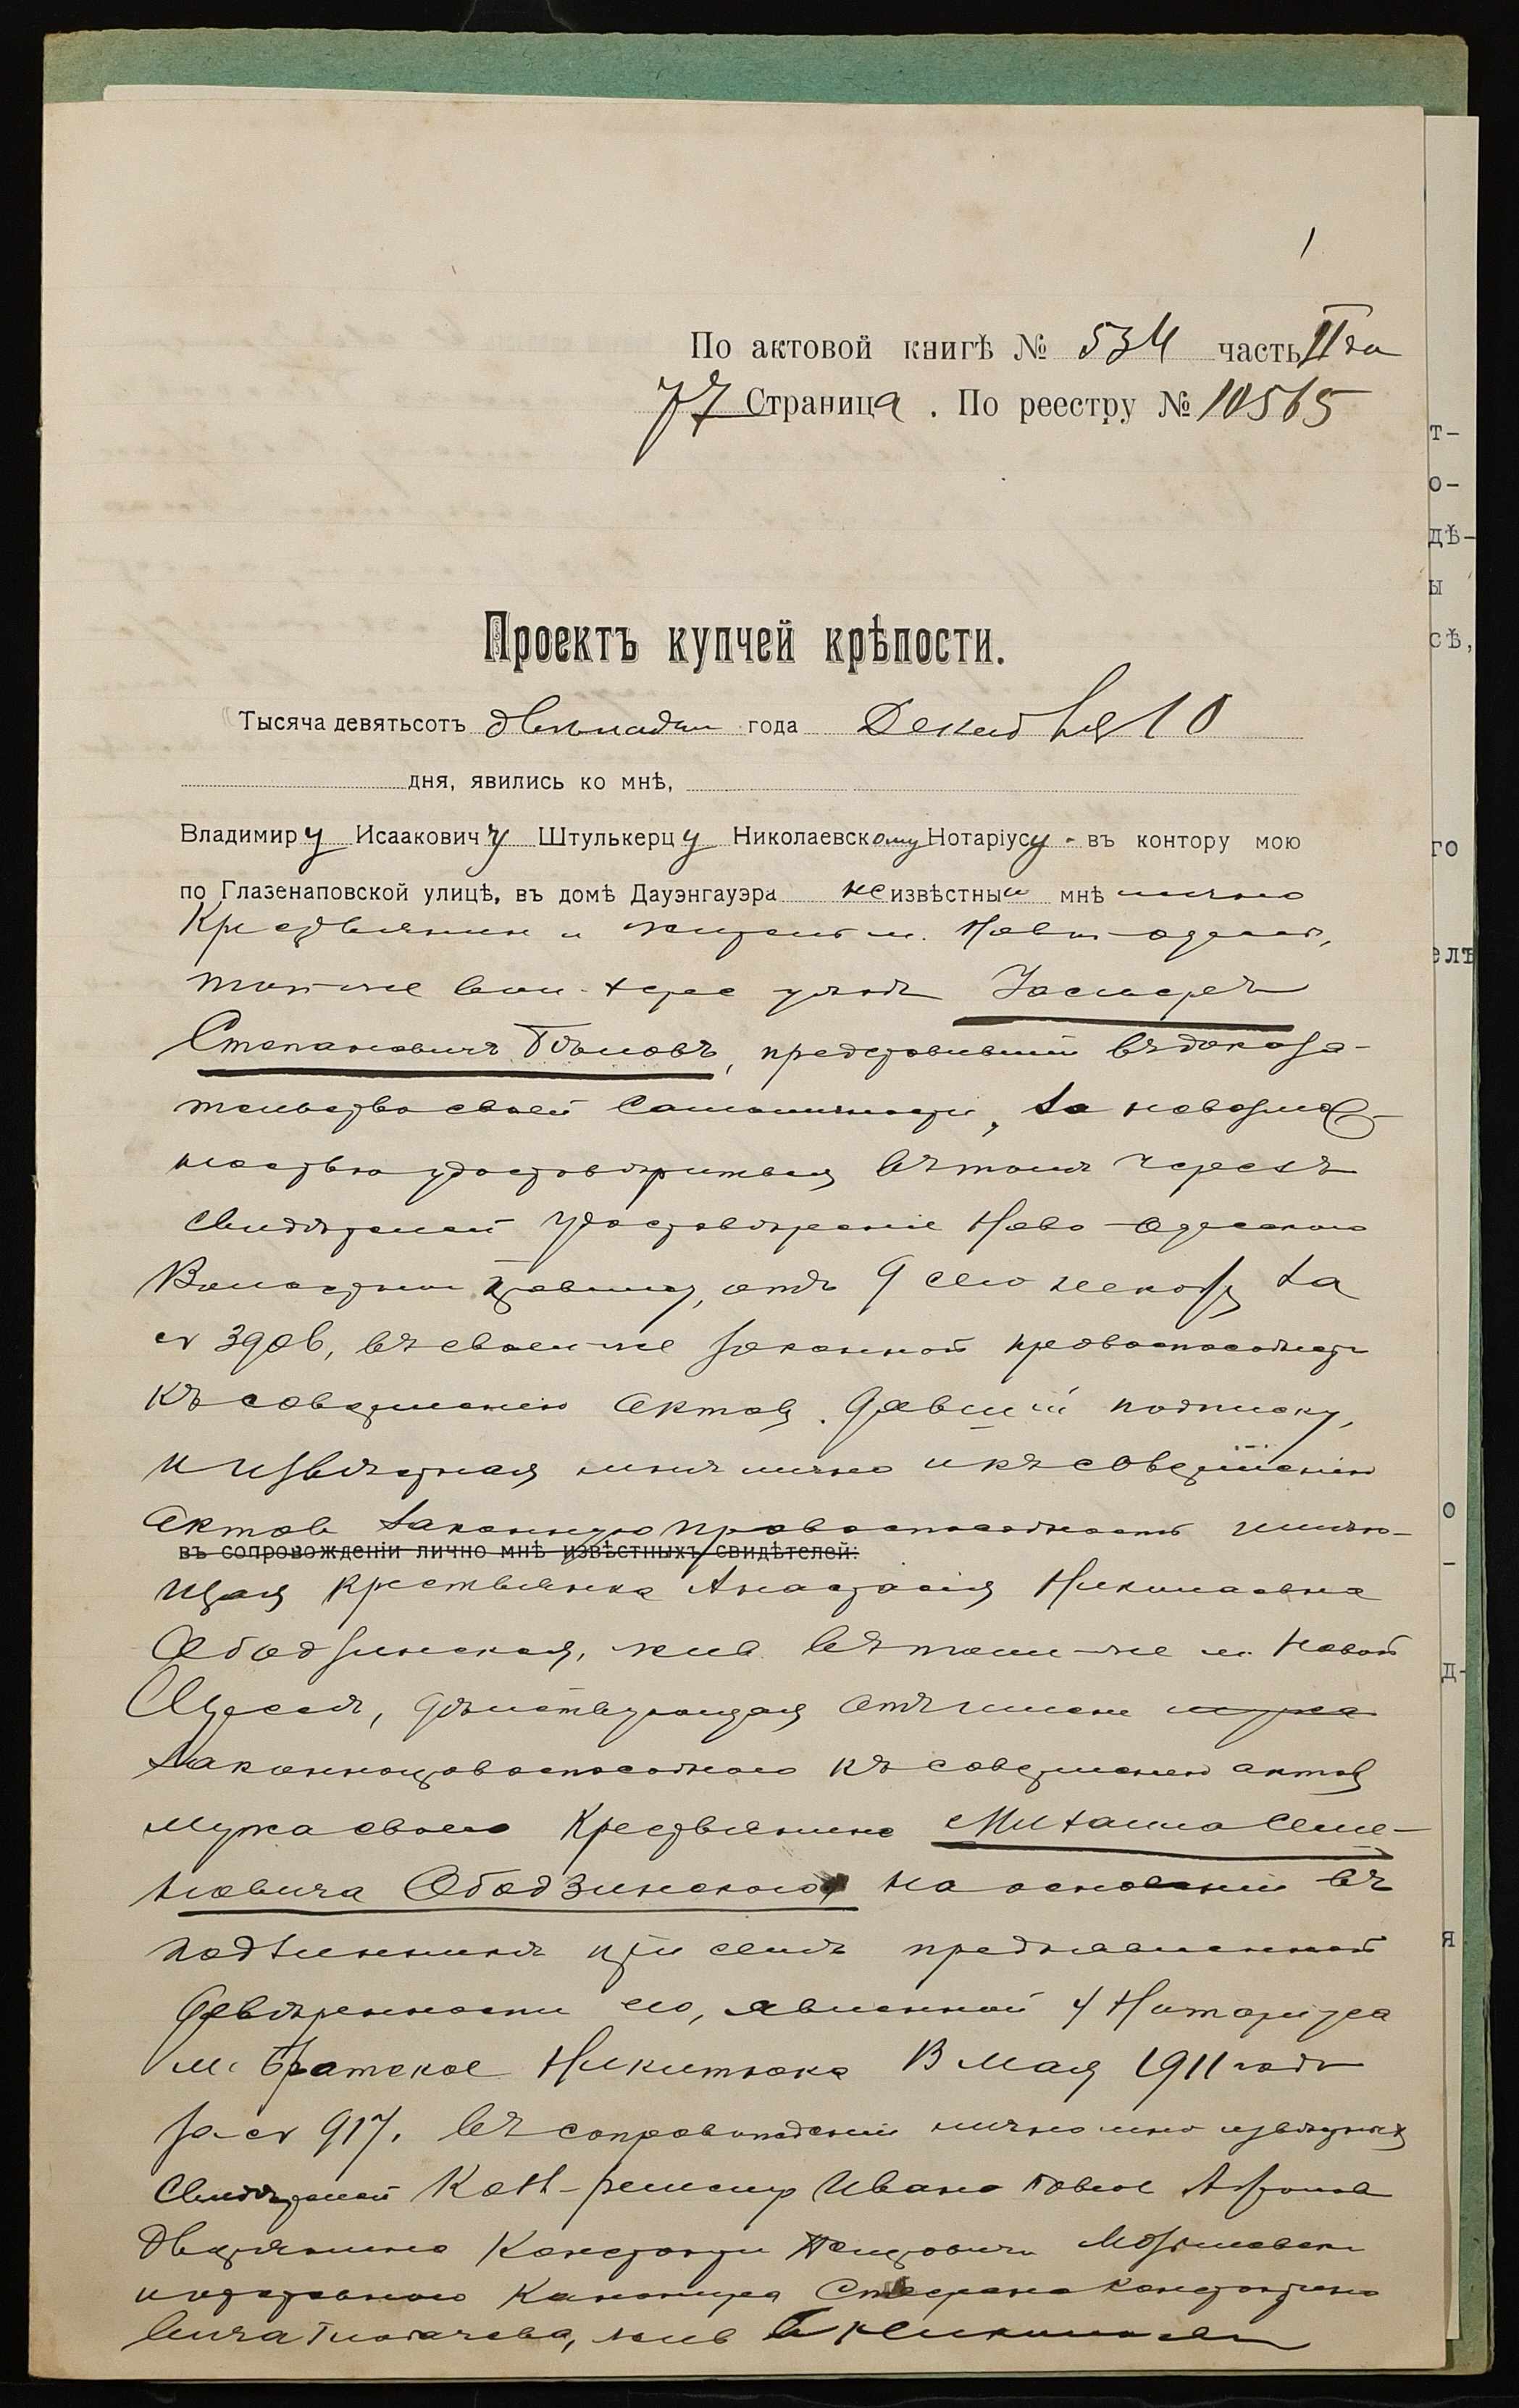 1
По актовой книгѣ № 534 часть II я
77 Страница. По реестру № 10565
Проектъ купчей крѣпости.
Тысяча девятьсотъ двѣнадцат года Декабря 10
дня, явились ко мнѣ,
Владимиру Исааковичу Штулькерцу Николаевскому Нотаріусу - въ контору мою
по Глазенаповской улицѣ, въ домѣ Дауэнгауэра неизвѣстный мнѣ лично
Крестьянин и
того же
Степановичъ, представившій въ доказа-
тельство своей самоличности, за невозмож-
ностью удостовѣриться въ томъ черезъ
свидѣтелей удостовѣреніе Ново-Одесскаго
Волостного Правленія, отъ 9 сего декабря за
№ 3906, въ своей же законной правоспособности
къ совершенію актовъ давшій подписку,
и извѣстная мнѣ лично и къ совершенію
актовъ законную правоспособность имѣю-
въ сопровожденіи лично мнѣ извѣстныхъ свидѣтелей:
щая крестьянка Анастасія Николаевна
Ободзинская, жив. въ томъ-же м. Новой
Одессѣ, дѣйствующая отъ имени мужа
законноправоспособнаго къ совершенію актовъ
мужа своего крестьянина Михаила Семе-
новича Ободзинскаго на основаніи въ
подлинникѣ при семъ предъявленной
довѣренности его, явленной у Нотаріуса
м. Братское Никитюка 13 Мая 1911 года
за № 917. въ сопровожденіи лично мнѣ извѣстныхъ
свидѣтелей Кол-регистр Ивана
дворянина
и отставного канонира Стефана Константино
вича, жив
т-
о-
дѣ-
ы
сѣ,
го
елъ
о
-
д-
я